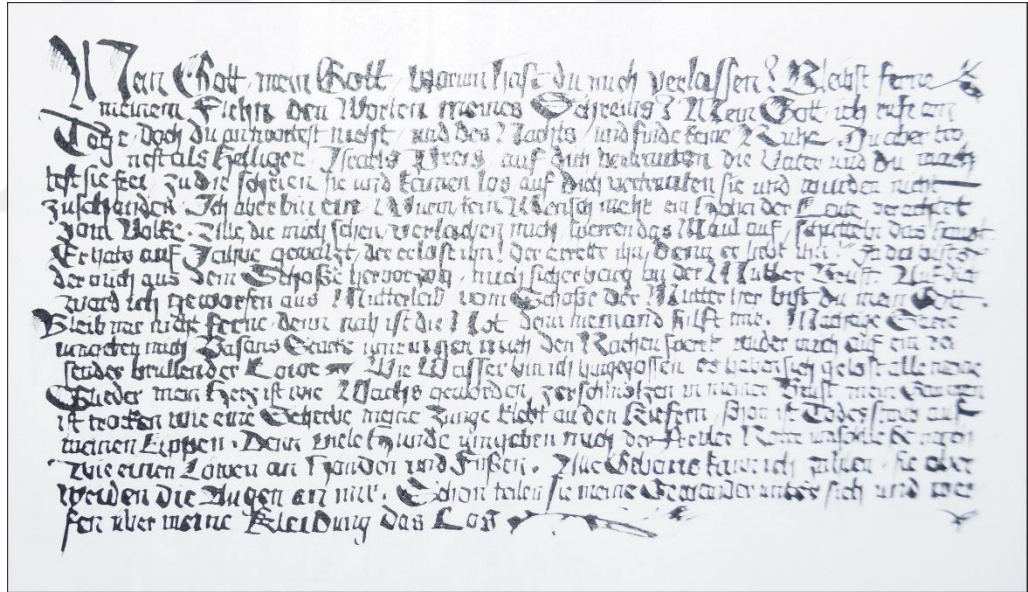 Mein Gott, mein Gott, Warum hast du mich verlassen? Bleibst ferne
meinem Flehn den Worten meines Schreins? Mein Gott, ich rufe am
Tage, doch du antwortest nicht, und des Nachts, und finde keine Ruhe. Du aber tro
nest als Heiliger, Israels Preis, auf dich vertrauten die Väter und du mach
test sie frei, zu dir schrien sie und kamen los auf dich vertrauten sie und wurden nicht
zuschanden. Ich aber bin ein Wurm, kein Mensch mehr ein Hohn der Leute verachtet
vom Volke. Alle, die mich sehen, verlachen mich, sperren das Maul auf, schütteln das Haupt.
Er hats auf Jahwe gewälzt, der erlöse ihn! der errette ihn, denn er liebt ihn. Ja du bist's
der mich aus dem Schoße hervorzog, mich sicher barg an der Mutter Brust. Auf dich
ward ich geworfen aus Mutterleib vom Schoße der Mutter her bist du mein Gott.
Bleib mir nicht ferne, denn nah ist die Not, denn niemand hilft mir. Mächtige Stiere
umgeben mich Basans Stiere umringen mich den Rachen sperrt wider mich auf ein rei
sender brüllender Löwe Wie Wasser bin ich hingegossen es haben sich gelöst alle meine
Glieder mein Herz ist wie Wachs geworden, zerschmolzen in meiner Brust, mein Gaumen
ist trocken wie eine Scherbe meine Zunge klebt an den Kiefern, schon ist Todesstaub auf
meinen Lippen. Denn viele Hunde umgeben mich der Frevler Rotte
wie einen Löwen an Händen und Füßen. Alle Gebeine kann ich zählen. Sie aber
weiden die Augen an mir. Schon teilen sie meine Gewänder unter sich und wer
fen über meine Kleidung das Los